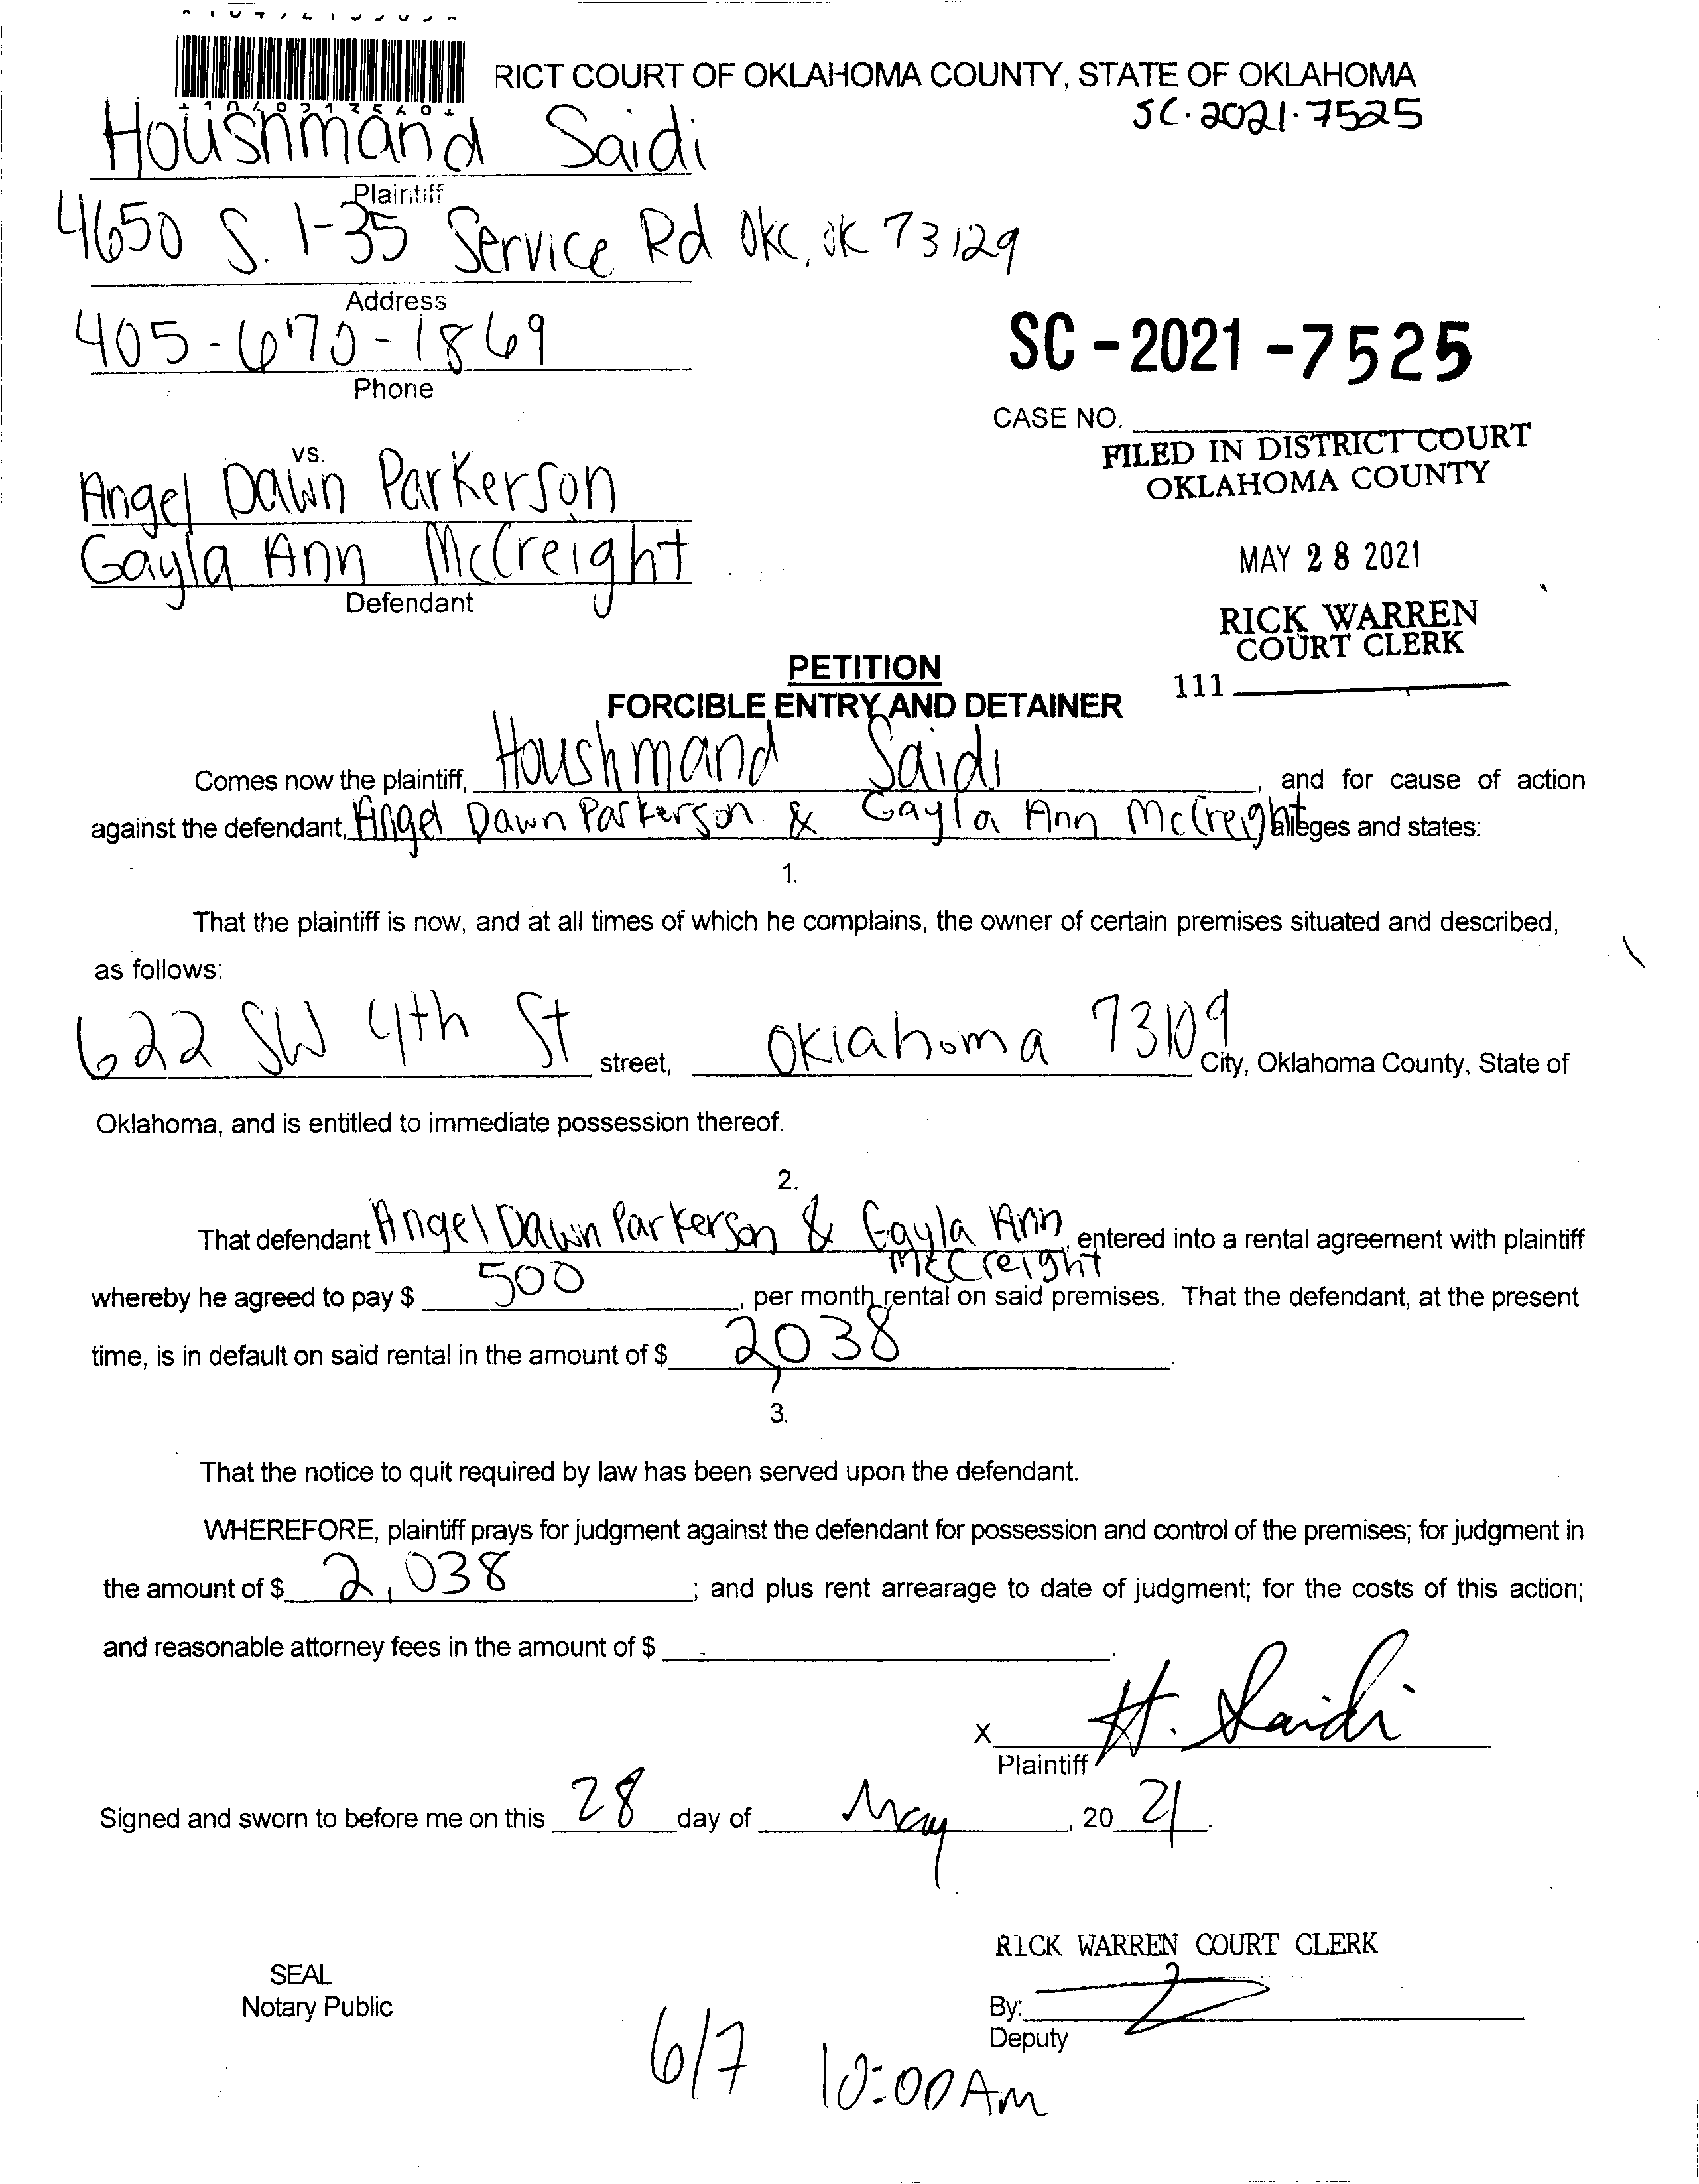 RICT COURT OF OKLAHOMA COUNTY, STATE OF OKLAHOMA
SC.2021.7525
Houshmand Saidi
Plaintiff
4650 S. I-35 Service Rd OKC, OK 73129
Address
405-670-1869
Phone
SC-2021-7525
CASE NO.
FILED IN DISTRICT COURT
OKLAHOMA COUNTY
MAY 28 2021
RICK WARREN
COURT CLERK
111
vs.
Angel Dawn Parkerson
Gayla Ann McCreight
Defendant
PETITION
FORCIBLE ENTRY AND DETAINER
Comes now the plaintiff, Houshmand Saidi, and for cause of action
against the defendant, Angel Dawn Parkerson & Gayla Ann McCreight alleges and states:
1.
That the plaintiff is now, and at all times of which he complains, the owner of certain premises situated and described,
as follows:
622 SW 4th St street, Oklahoma 73109 City, Oklahoma County, State of
Oklahoma, and is entitled to immediate possession thereof.
2.
That defendant Angel Dawn Parkerson & Gayla Ann McCreight, entered into a rental agreement with plaintiff
whereby he agreed to pay $ 500, per month rental on said premises. That the defendant, at the present
time, is in default on said rental in the amount of $ 2,038.
3.
That the notice to quit required by law has been served upon the defendant.
WHEREFORE, plaintiff prays for judgment against the defendant for possession and control of the premises; for judgment in
the amount of $ 2,038; and plus rent arrearage to date of judgment; for the costs of this action;
and reasonable attorney fees in the amount of $
X H. Saidi
Plaintiff
Signed and sworn to before me on this 28 day of May, 20 21.
RICK WARREN COURT CLERK
SEAL
Notary Public
By:
Deputy
6/7 10:00 AM